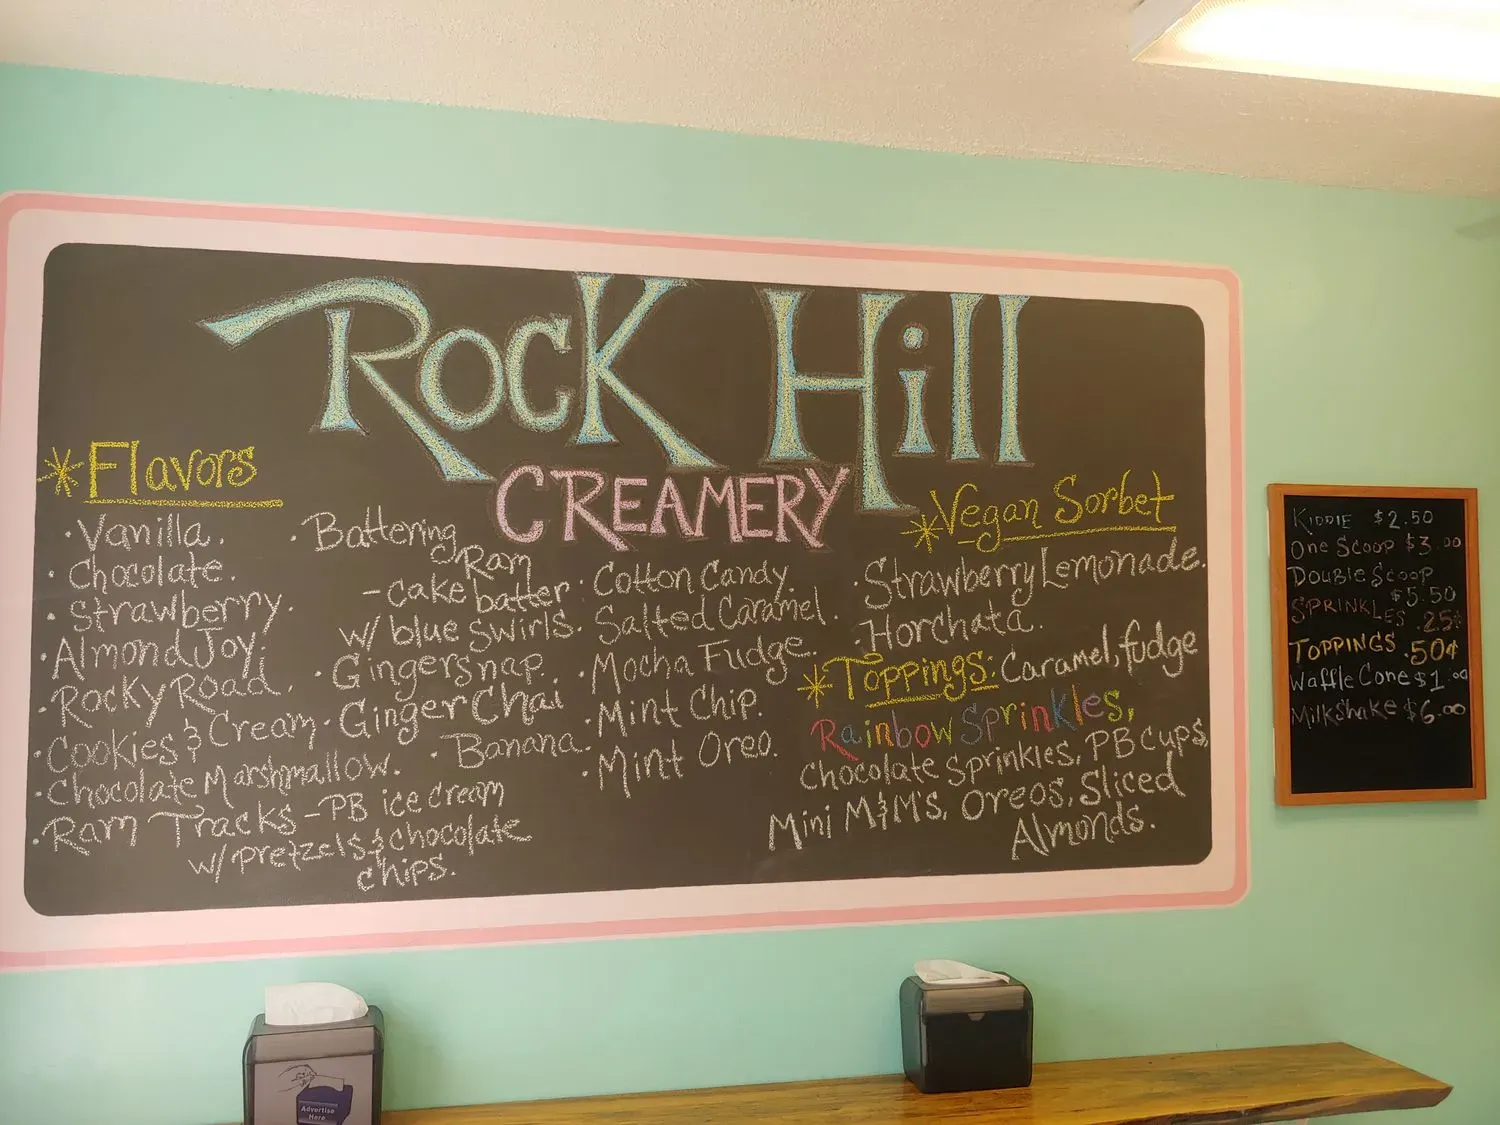 Rock Hill
CREAMERY
*Flavors
· Vanilla.
· Chocolate.
· Strawberry.
· Almond Joy.
· Rocky Road.
· Cookies & Cream
· Chocolate Marshmallow.
· Ram Tracks - PB ice cream
w/ pretzels & chocolate
chips.
· Battering
Ram
- cake batter
w/ blue swirls.
· Gingersnap.
· Ginger Chai
· Banana
· Cotton Candy.
· Salted Caramel.
· Mocha Fudge.
· Mint Chip.
· Mint Oreo.
*Vegan Sorbet
· Strawberry Lemonade.
· Horchata.
*Toppings: Caramel, fudge
Rainbow Sprinkles,
Chocolate Sprinkles, PB cups,
Mini M&M's, Oreos, Sliced
Almonds.
KIDDIE $2.50
One Scoop $3.00
Double Scoop
$5.50
SPRINKLES .25¢
TOPPINGS .50¢
Waffle Cone $1.00
Milkshake $6.00
Advertise
Here